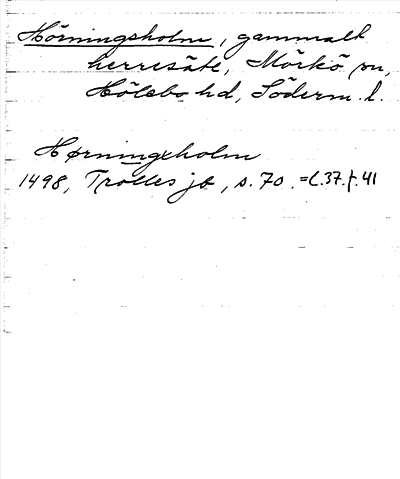 Hörningsholm, gammalt
herresäte, Mörkö sn,
Hölebo hd, Söderm. l.
Hørningxholm
1498, Trolles jb, s. 70. =C.37.f.41